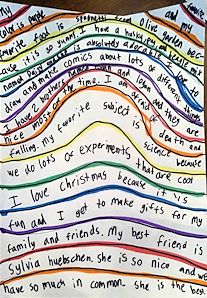 My and my
color is purple
favorite food is spaghetti from Olive garden bec
ause it is so yummy I have a husky puppy
named and is absolutely adorable I love to
draw and make comics about lots of different things
I have 2 brothers named and Logan and they are
nice most of the time. I am scared of death and
falling. my favorite subject is science because
we do lots of experments that are cool
I love Christmas because it is
fun and I get to make gifts for my
family and friends. My best friend is
Sylvia huebschen. She is so nice and we
have so much in common. she is the best